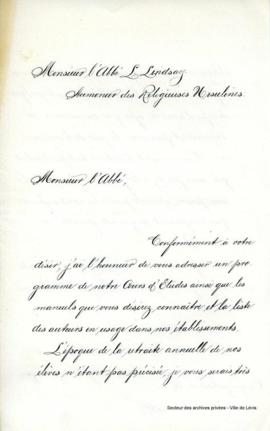 Monsieur l'Abbé L. Lindsay
Aumonier des Religieuses Ursulines.
Monsieur l'Abbé,
Conformément à votre
désir, j'ai l'honneur de vous adresser un pro
gramme de notre Cours d'Etudes ainsi que les
manuels que vous désirez connaître et la liste
des auteurs en usage dans nos établissements.
L'époque de la retraite annuelle de nos
élèves n'étant pas précisée, je vous serais très
Secteur des archives privées - Ville de Lévis